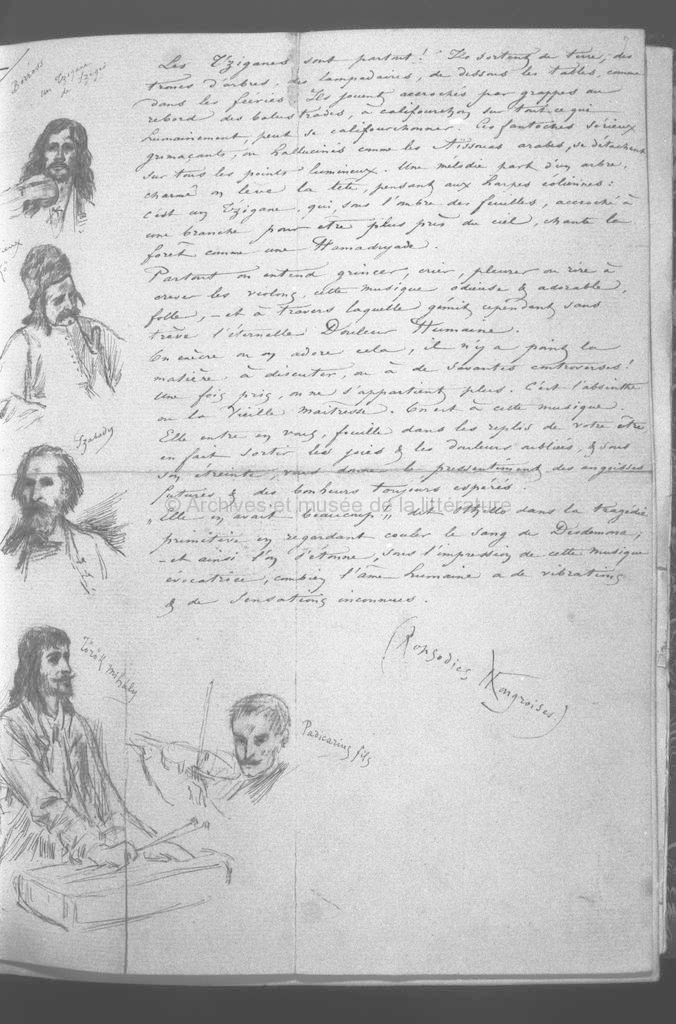 Les Tziganes sont partout! Ils sortent de terre, des
troncs d'arbres, des lampadaires, de dessous les tables, comme
dans les féeries. Ils jouent accrochés par grappes au
rebord des balustrades, à califourchon sur tout ce qui
humainement, peut se califourchonner. Ces fantoches sérieux
grimaçants, ou hallucinés comme les Aïssouas arabes, se détachent
sur tous les points lumineux. Une mélodie part d'un arbre,
charmé on lève la tête, pensant aux harpes éoliennes:
c'est un Tzigane, qui, sous l'ombre des feuilles, accroché à
une branche pour être plus près du ciel, chante la
forêt comme une Hamadryade.
Partout on entend grincer, crier, pleurer ou rire à
crever les violons, cette musique odieuse & adorable,
folle, – et à travers laquelle gémit cependant sans
trève l'éternelle Douleur Humaine.
On exècre ou on adore cela, il n'y a point là
matière à discuter, ou à de savantes controverses!
Une fois pris, on ne s'appartient plus. C'est l'absinthe
ou la Vieille maîtresse. On est à cette musique.
Elle entre en vous, fouille dans les replis de votre être
en fait sortir les joies & les douleurs oubliées, & sous
son étreinte, vous donne le pressentiment des angoisses
futures & des bonheurs toujours espérés.
„Elle en avait beaucoup„ dit Othello dans la tragédie
primitive en regardant couler le sang de Desdemona;
– et ainsi l'on s'étonne, sous l'impression de cette musique
évocatrice, combien l'âme humaine a de vibrations
& de sensations inconnues.
(Rapsodies Hongroises)
un Tzigane
Szabady
Török Mihaly
Paricarius fils
© Archives et musée de la littérature